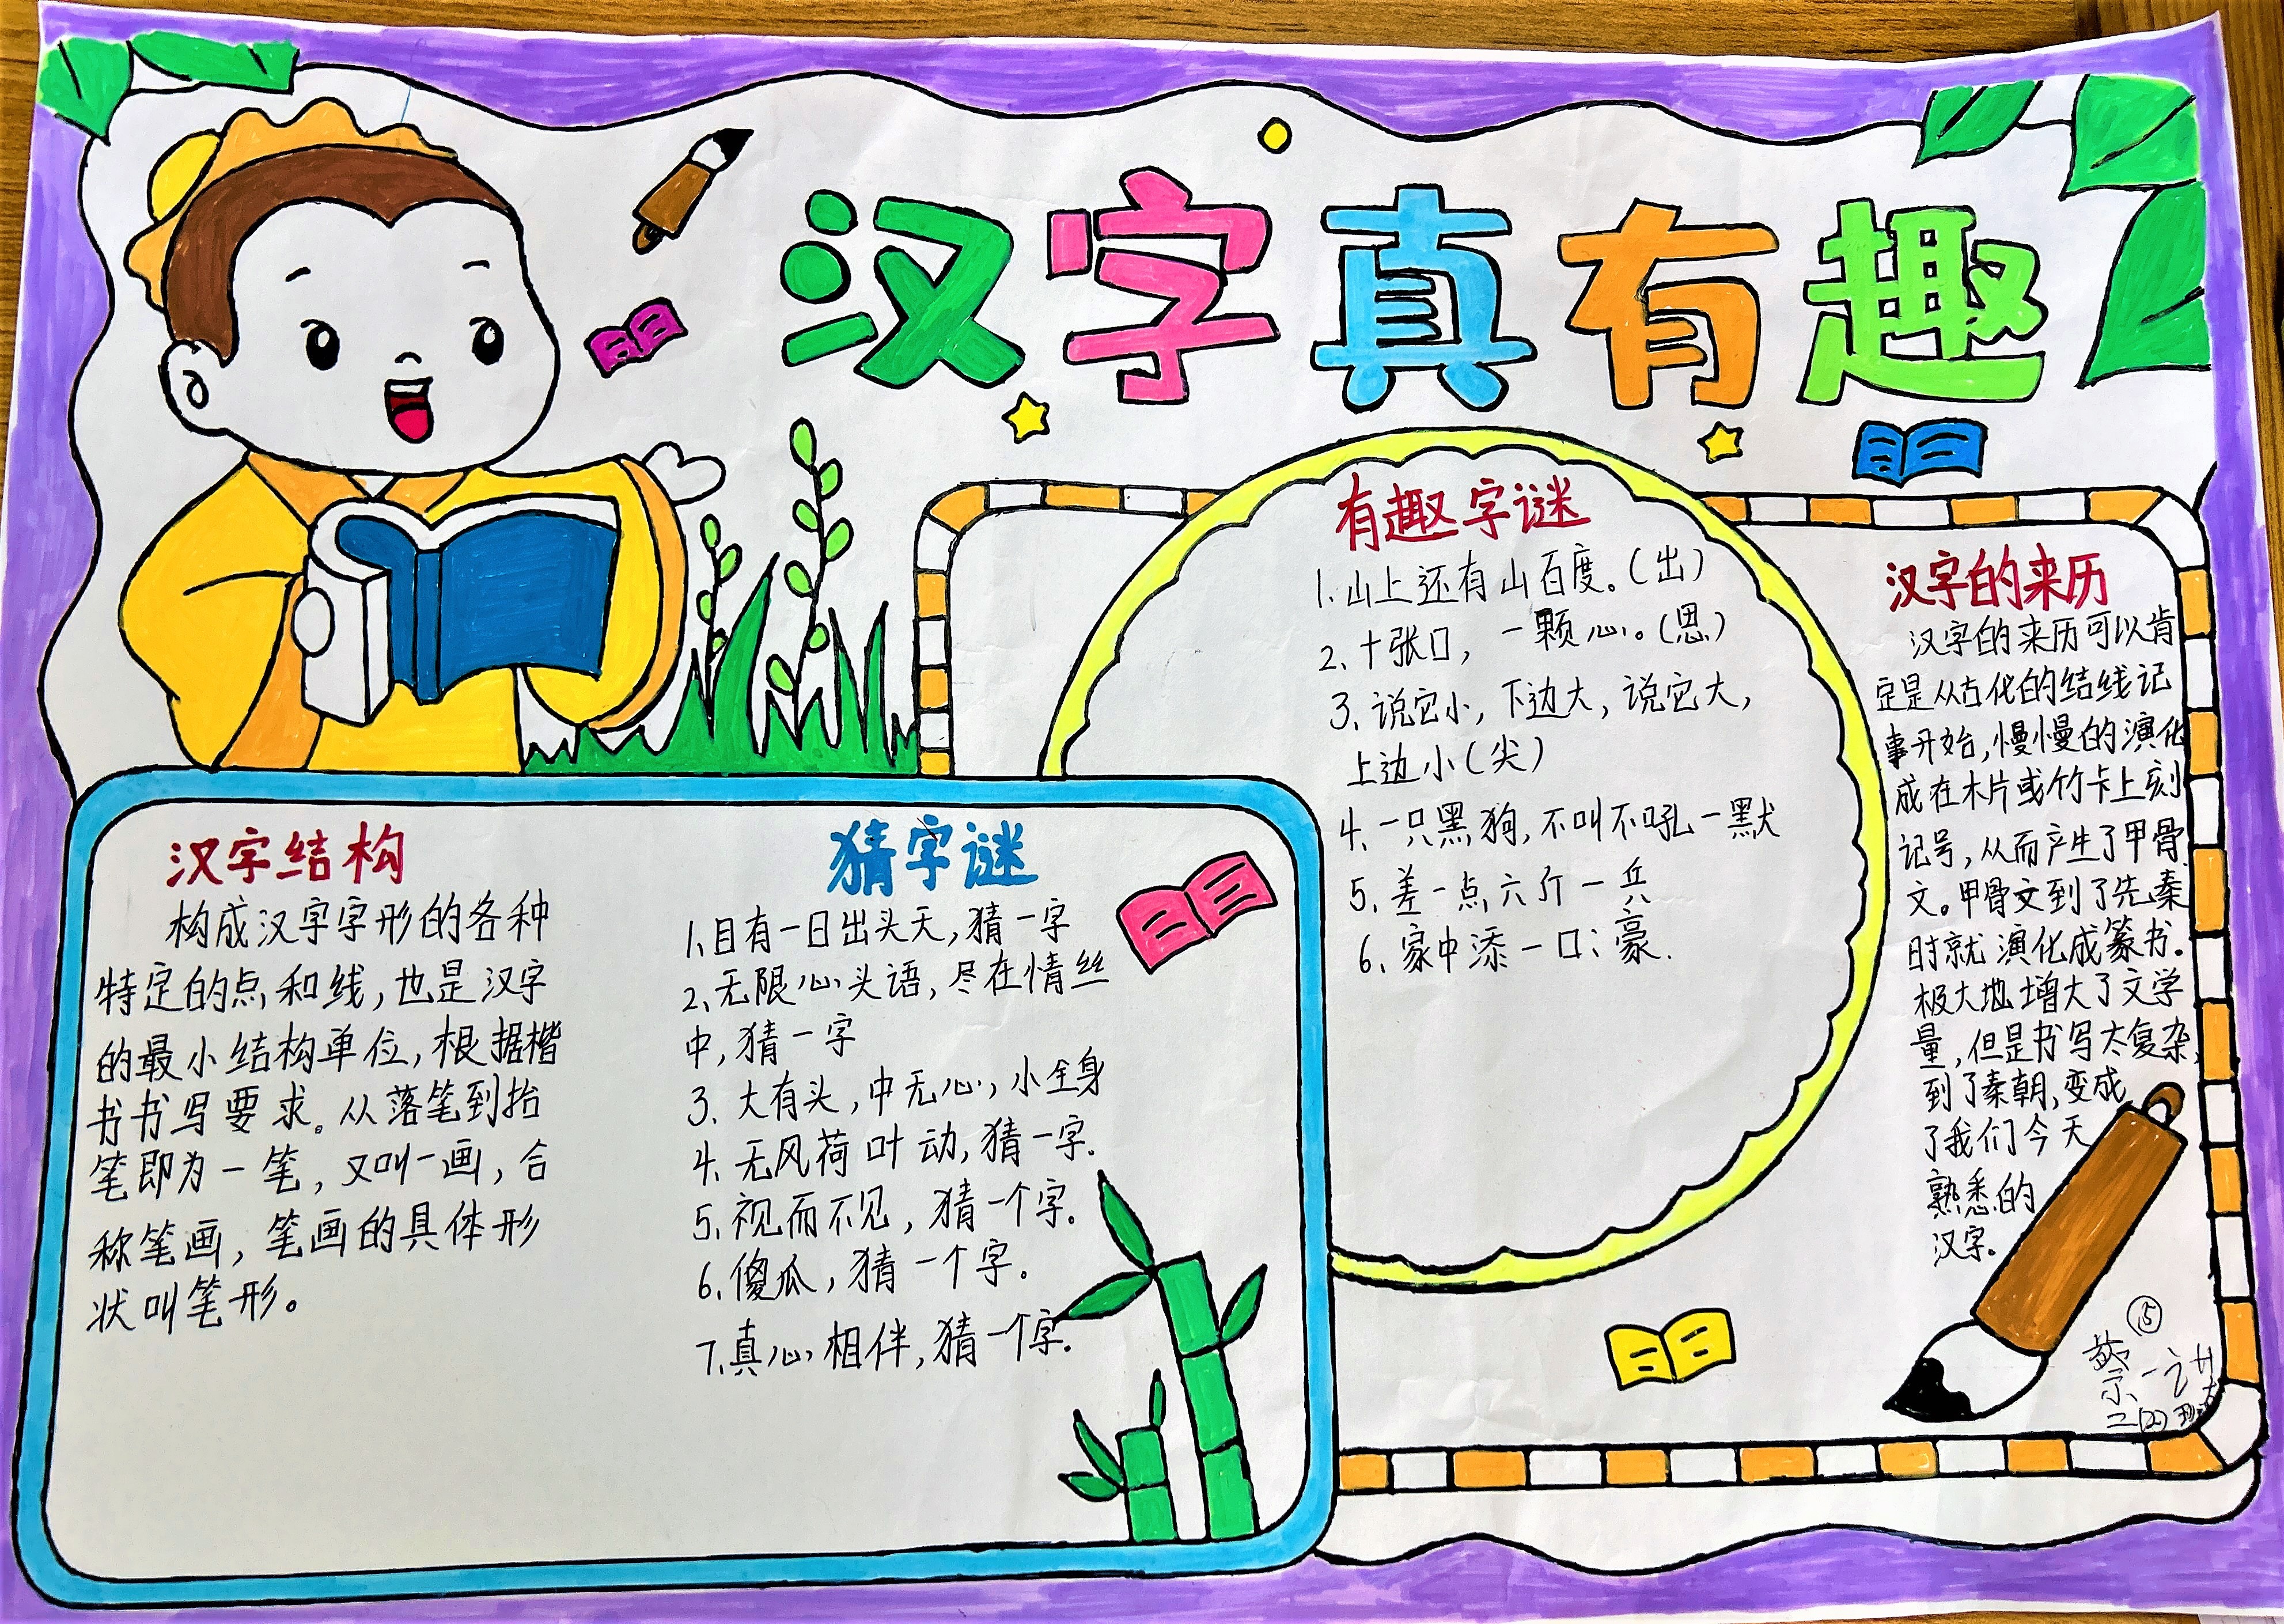 汉字真有趣
汉字结构
构成汉字字形的各种
特定的点和线,也是汉字
的最小结构单位,根据楷
书书写要求。从落笔到抬
笔即为一笔,又叫一画,合
称笔画,笔画的具体形
状叫笔形。
猜字谜
1.目有一日出头天,猜一字
2.无限心头语,尽在情丝
中,猜一字
3.大有头,中无心,小全身
4.无风荷叶动,猜一字.
5.视而不见,猜一个字。
6.傻瓜,猜一个字。
7.真心相伴,猜一个字.
有趣字谜
1.山上还有山百度。(出)
2.十张口,一颗心。(思)
3.说它小,下边大,说它大,
上边小(尖)
4.一只黑狗,不叫不吼一默
5.差一点六斤一兵
6.家中添一口:豪.
汉字的来历
汉字的来历可以肯
定是从古代的结线记
事开始,慢慢的演化
成在木片或竹卡上刻
记号,从而产生了甲骨
文。甲骨文到了先秦
时就演化成篆书。
极大地增大了文学
量,但是书写太复杂,
到了秦朝,变成
了我们今天
熟悉的
汉字。
⑮
二(2)班